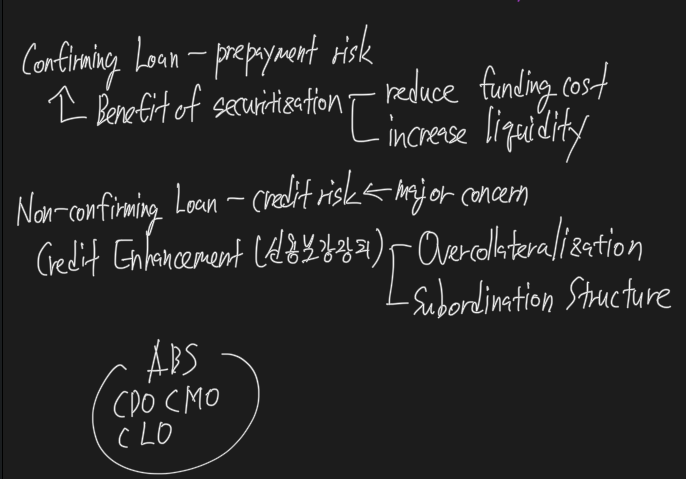 Confirming Loan - prepayment risk
Benefit of securitization
reduce funding cost
increase liquidity
Non-confirming Loan - credit risk ← major concern
Credit Enhancement (신용보강강화)
Overcollateralization
Subordination Structure
ABS
CDO CMO
CLO